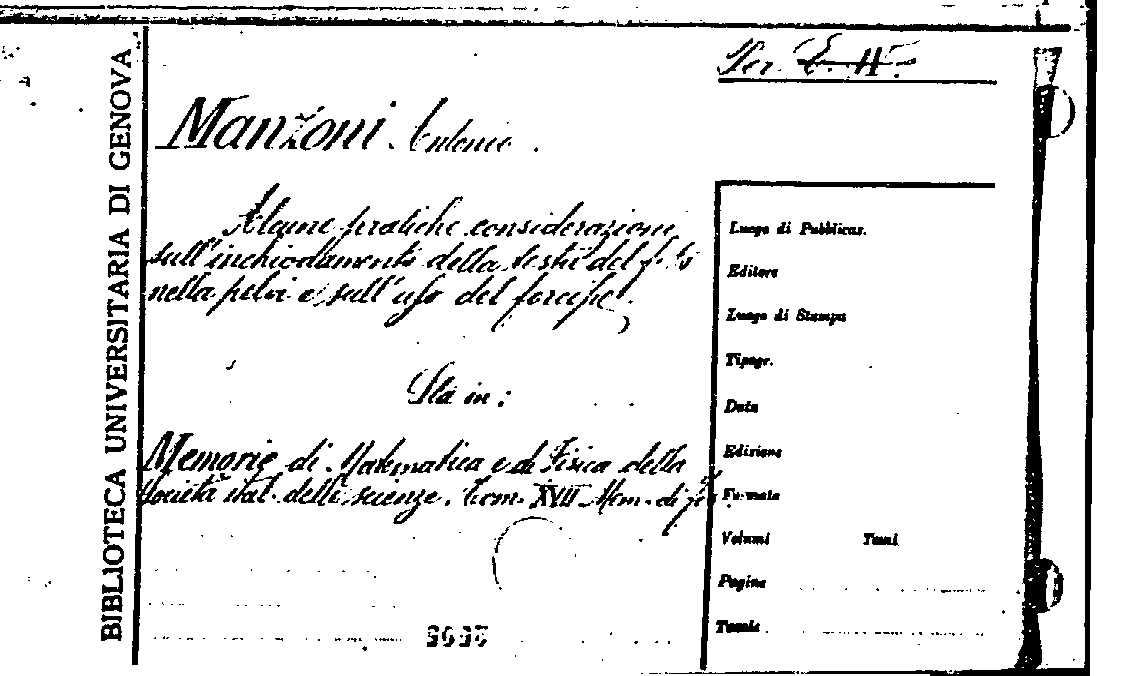 BIBLIOTECA UNIVERSITARIA DI GENOVA
Per. E. II.
Manzoni Antonio.
Alcune pratiche considerazioni
sull'inchiodamento della testa del feto
nella pelvi e sull'uso del forcipe.
Sta in:
Memorie di Matematica e di Fisica della
Società ital. delle scienze. Tom. XVII Mem. di
Luogo di Pubblicaz.
Editore
Luogo di Stampa
Tipogr.
Data
Edizione
Formato
Volumi Tomi
Pagine
Tavole